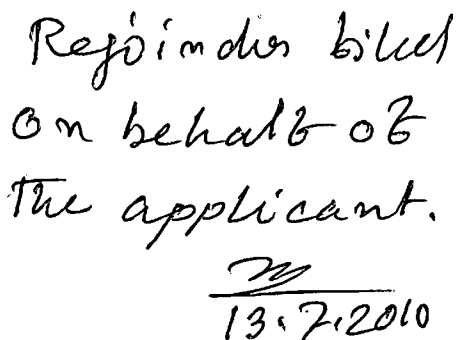 Rejoinder filed
on behalf of
the applicant.
13.7.2010